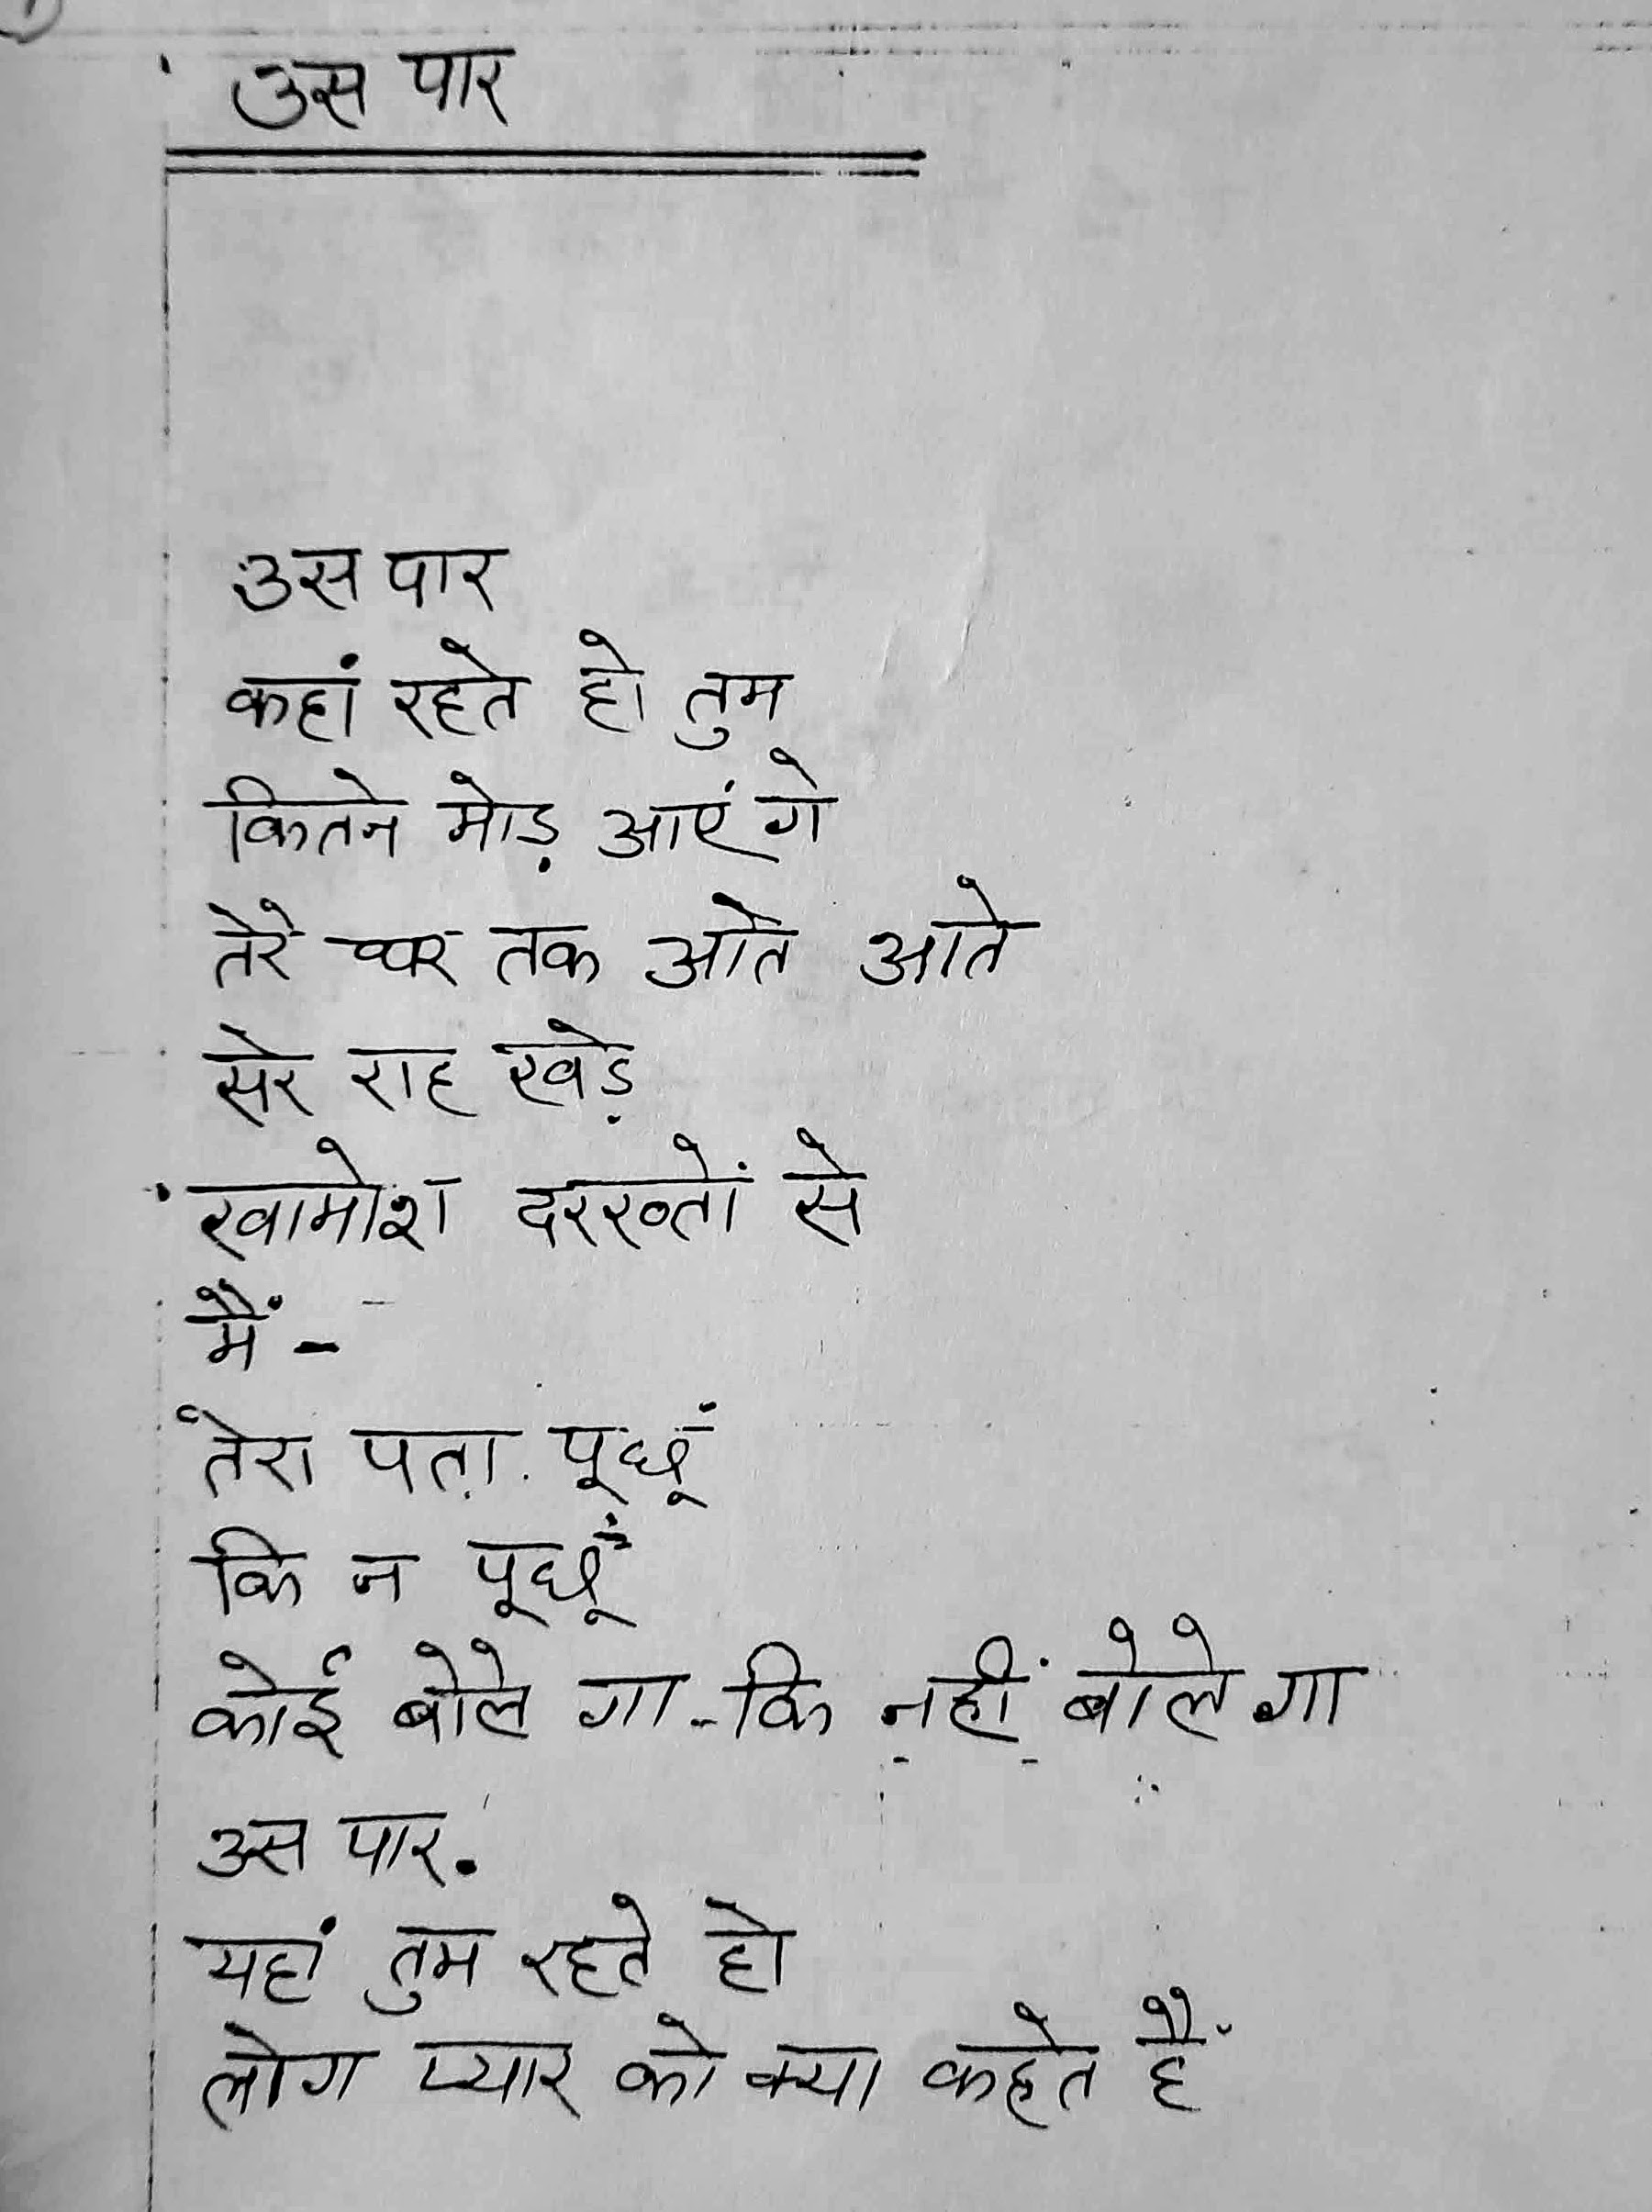 उस पार
उस पार
कहां रहते हो तुम
कितने मोड़ आएं गे
तेरे घर तक आते आते
सरे राह खड़े
खामोश दरख्तों से
मैं -
तेरा पता पूछूं
कि न पूछूँ
कोई बोले गा - कि नहीं बोले गा
उस पार.
यहां तुम रहते हो
लोग प्यार को क्या कहते हैं